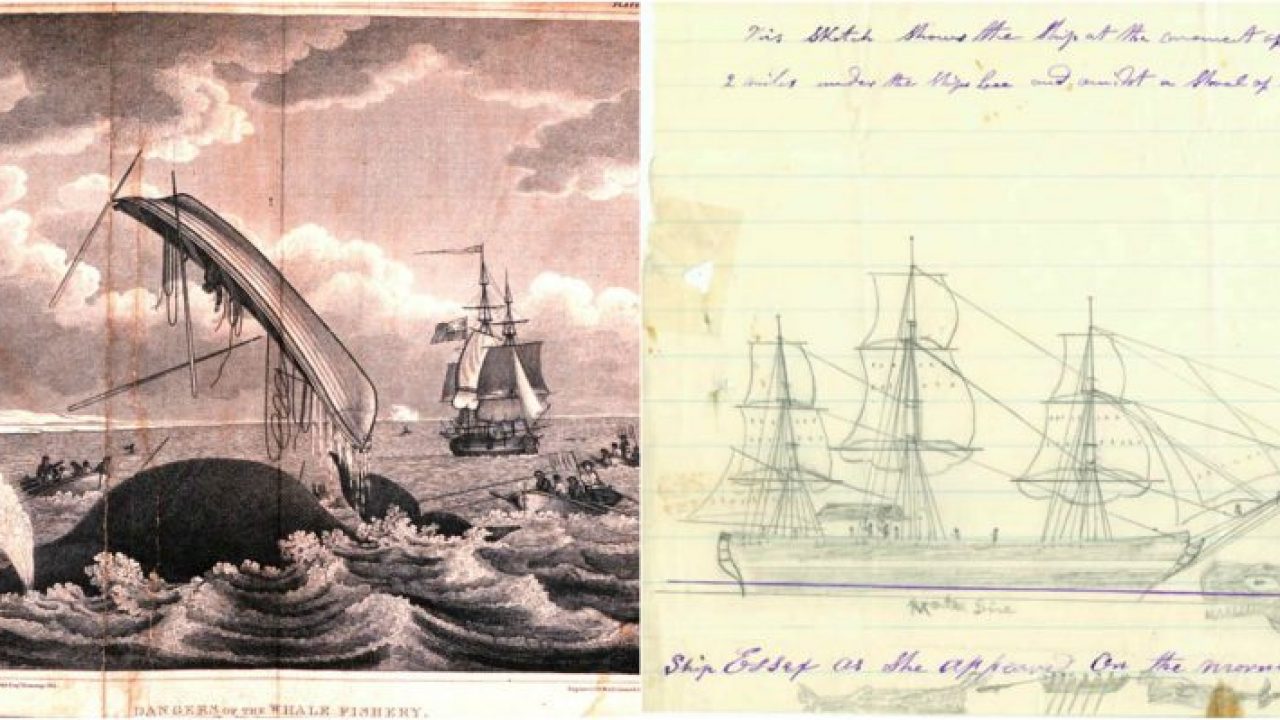 DANGERS OF THE WHALE FISHERY.
This Sketch shows the Ship at the moment of
2 miles under the ships Lee and amidst a Shoal of
Water Line
Ship Essex as she appeared On the morn